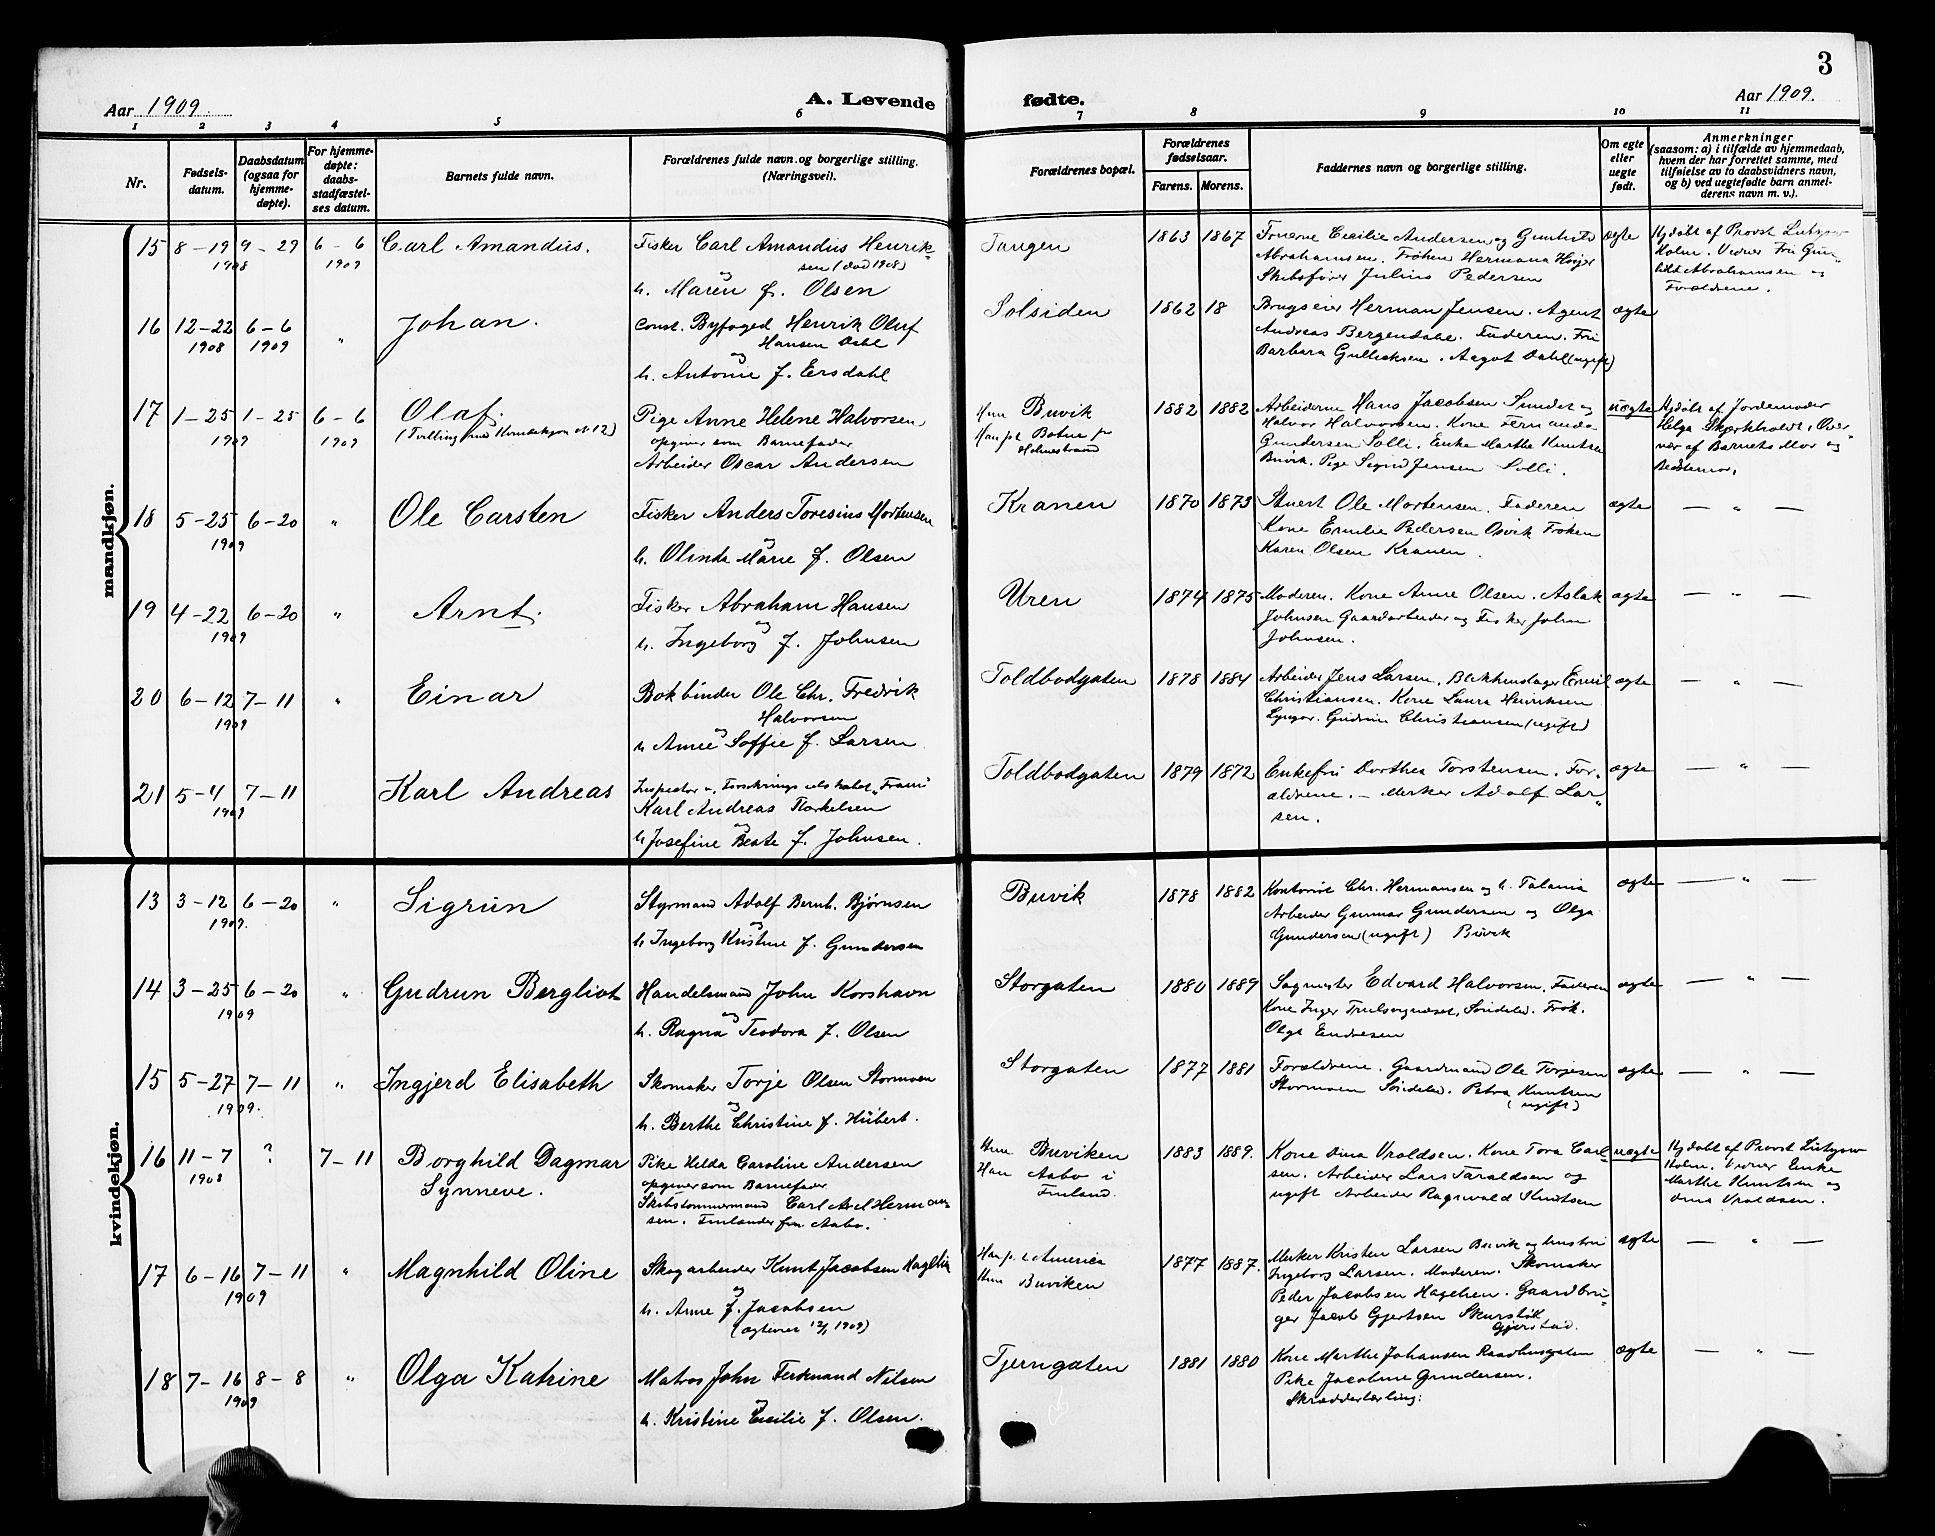 3
Aar 1909.
A. Levende
fødte.
Aar 1909.
1 2 3 4 5 6 7 8 9 10 11
Nr.
Fødsels-
datum.
Daabsdatum
(ogsaa for
hjemme-
døpte).
For hjemme-
døpte:
daabs-
stadfæstel-
ses datum.
Barnets fulde navn.
Forældrenes fulde navn og borgerlige stilling.
(Næringsvei).
Forældrenes bopæl.
Forældrenes
fødselsaar.
Farens. Morens.
Faddernes navn og borgerlige stilling.
Om egte
eller
uegte
født.
Anmerkninger
(saasom: a) i tilfælde av hjemmedaab,
hvem der har forrettet samme, med
tilføielse av to daabsvidners navn,
og b) ved uegtefødte barn anmel-
derens navn m. v.).
mandkjøn.
15 8-19 1908 9-29 6-6 1909 Carl Amandus.
Fisker Carl Amandus Henrik-
sen (død 1908)
og
h. Maren f. Olsen
Tangen 1863 1867
Fruerne Cecilie Andersen og Gunhild
Abrahamsen. Frøken Hermana
Skibsfører Julius Pedersen
ægte
Hjdøbt af Provst Lutzow
Holm. Vidner Fru Gun-
hild Abrahamsen og
Forældrene.
16 12-22 1908 6-6 1909 " Johan.
Const. Byfoged Henrik Oluf
Hansen Dahl
og
h. Antonie f. Eersdahl
Solsiden 1862 18
Brugseier Herman Jensen. Agent
Andreas Bergendahl. Faderen. Fru
Barbara Gulliksen. Aagot Dahl (ugift)
ægte
17 1-25 1909 1-25 6-6 1909 Olaf.
(Tvilling med Kvindekjøn No 12)
Pige Anne Helene Halvorsen
opgiver som Barnefader
Arbeider Oscar Andersen
Hun Buvik
Han pt Botne pr
Holmestrand
1882 1882
Arbeiderne Hans Jacobsen Sundet og
Halvor Halvorsen. Kone Fernanda
Gundersen Solli. Enke Marthe Knutsen
Buvik. Pige Sigrid Jensen Solli.
uægte
Hjdøbt af Jordemoder
Helga Skjerkholdt, Over-
vær af Barnets Mor og
Bedstemor.
18 5-25 1909 6-20 " Ole Carsten
Fisker Anders Toresius Mortensen
og
h. Olinda Marie f. Olsen
Kranen 1870 1873
Stuert Ole Mortensen. Faderen
Kone Emilie Pedersen Osvik Frøken
Karen Olsen Kranen.
ægte — " —
19 4-22 1909 6-20 " Arnt.
Fisker Abraham Hansen
og
h. Ingeborg f. Johnsen
Uren 1874 1875
Moderen. Kone Anne Olsen. Aslak
Johnsen Gaardarbeider og Fisker John
Johnsen.
ægte — " —
20 6-12 1909 7-11 " Einar
Bokbinder Ole Chr. Fredrik
Halvorsen
og
h Anne Soffie f. Larsen
Toldbodgaten 1878 1884
Arbeider Jens Larsen. Blikkenslager Emil
Christiansen. Kone Laura Henriksen
Lyngør. Gudrun Christiansen (ugift)
ægte — " —
21 5-4 1909 7-11 Karl Andreas
Inspektør v. Forsikrings Aktsels. "Fram"
Karl Andreas Torkelsen
og
h Josefine Beate f. Johnsen.
Toldbodgaten 1879 1872
Enkefru Dorthea Torstensen. For-
ældrene. — Merker Adolf Lar-
sen.
ægte — " —
kvindekjøn.
13 3-12 1909. 6-20 " Sigrun
Styrmand Adolf Bernh. Bjørnsen
og
h Ingeborg Kristine f. Gundersen
Buvik 1878 1882
Kontorist Chr. Hermansen og h. Talania
Arbeider Gunnar Gundersen og Olga
Gundersen (ugift) Buvik
ægte — " —
14 3-25 1909 6-20 " Gudrun Bergliot
Handelsmand John Korshavn
og
h. Ragna Teodora f. Olsen
Storgaten 1880 1889
Sagmester Edvard Halvorsen, Faderen
Kone Inger Søndeled. Frøk.
Olga Endresen
ægte — " —
15 5-27 1909. 7-11 " Ingjerd Elisabeth
Skomaker Torje Olsen Stormoen
og
h. Berthe Christine f. Hübert.
Storgaten 1877 1881
Forældrene. Gaardmand Ole Torjesen
Stormoen Søndeled. Petra Knutsen
(ugift)
ægte — " —
16 11-7 1908 ? 7-11 Borghild Dagmar
Synneve.
Pike Hilda Caroline Andersen
opgiver som Barnefader
Skibstømmermand Carl Axel Herman-
sen. Finlænder fra Aabo.
Hun Buviken
Han Aabo i
Finland.
1883 1889.
Kone Dina Vraldsen. Kone Tora Carl-
sen. Arbeider Lars Taraldsen og
ugift Arbeider Ragnvald Knutsen
uægte
Hjdøbt af Provst Lutzow
Holm. Vidner Enke
Marthe Knutsen og
Dina Vraldsen.
17 6-16 1909 7-11 " Magnhild Oline
Skogarbeider Knut Jacobsen Haglien
og
h. Anne f. Jacobsen
(ægteviet 12/1 1909)
Han p. t Amerika
Hun Buviken
1877 1887.
Merker Kristen Larsen Buvik og hustru
Ingeborg Larsen. Moderen. Skomaker
Peder Jacobsen Haglien. Gaardbru-
ger Jacob Gjertsen Skarstøl
Gjerstad.
ægte — " —
18 7-16 1909 8-8 " Olga Katrine
Matros John Ferdinand Nilsen
og
h. Kristine Cecilie f. Olsen.
Tjerngaten 1881 1880
Kone Marthe Johansen Raadhusgaten
Pike Jacobine Gundersen.
Skrædderlærling:
ægte — " —